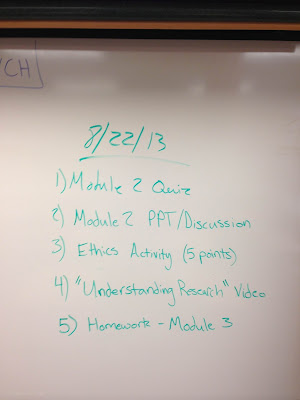 YCH
8/22/13
1) Module 2 Quiz
2) Module 2 PPT/Discussion
3) Ethics Activity (5 points)
4) "Understanding Research" Video
5) Homework - Module 3